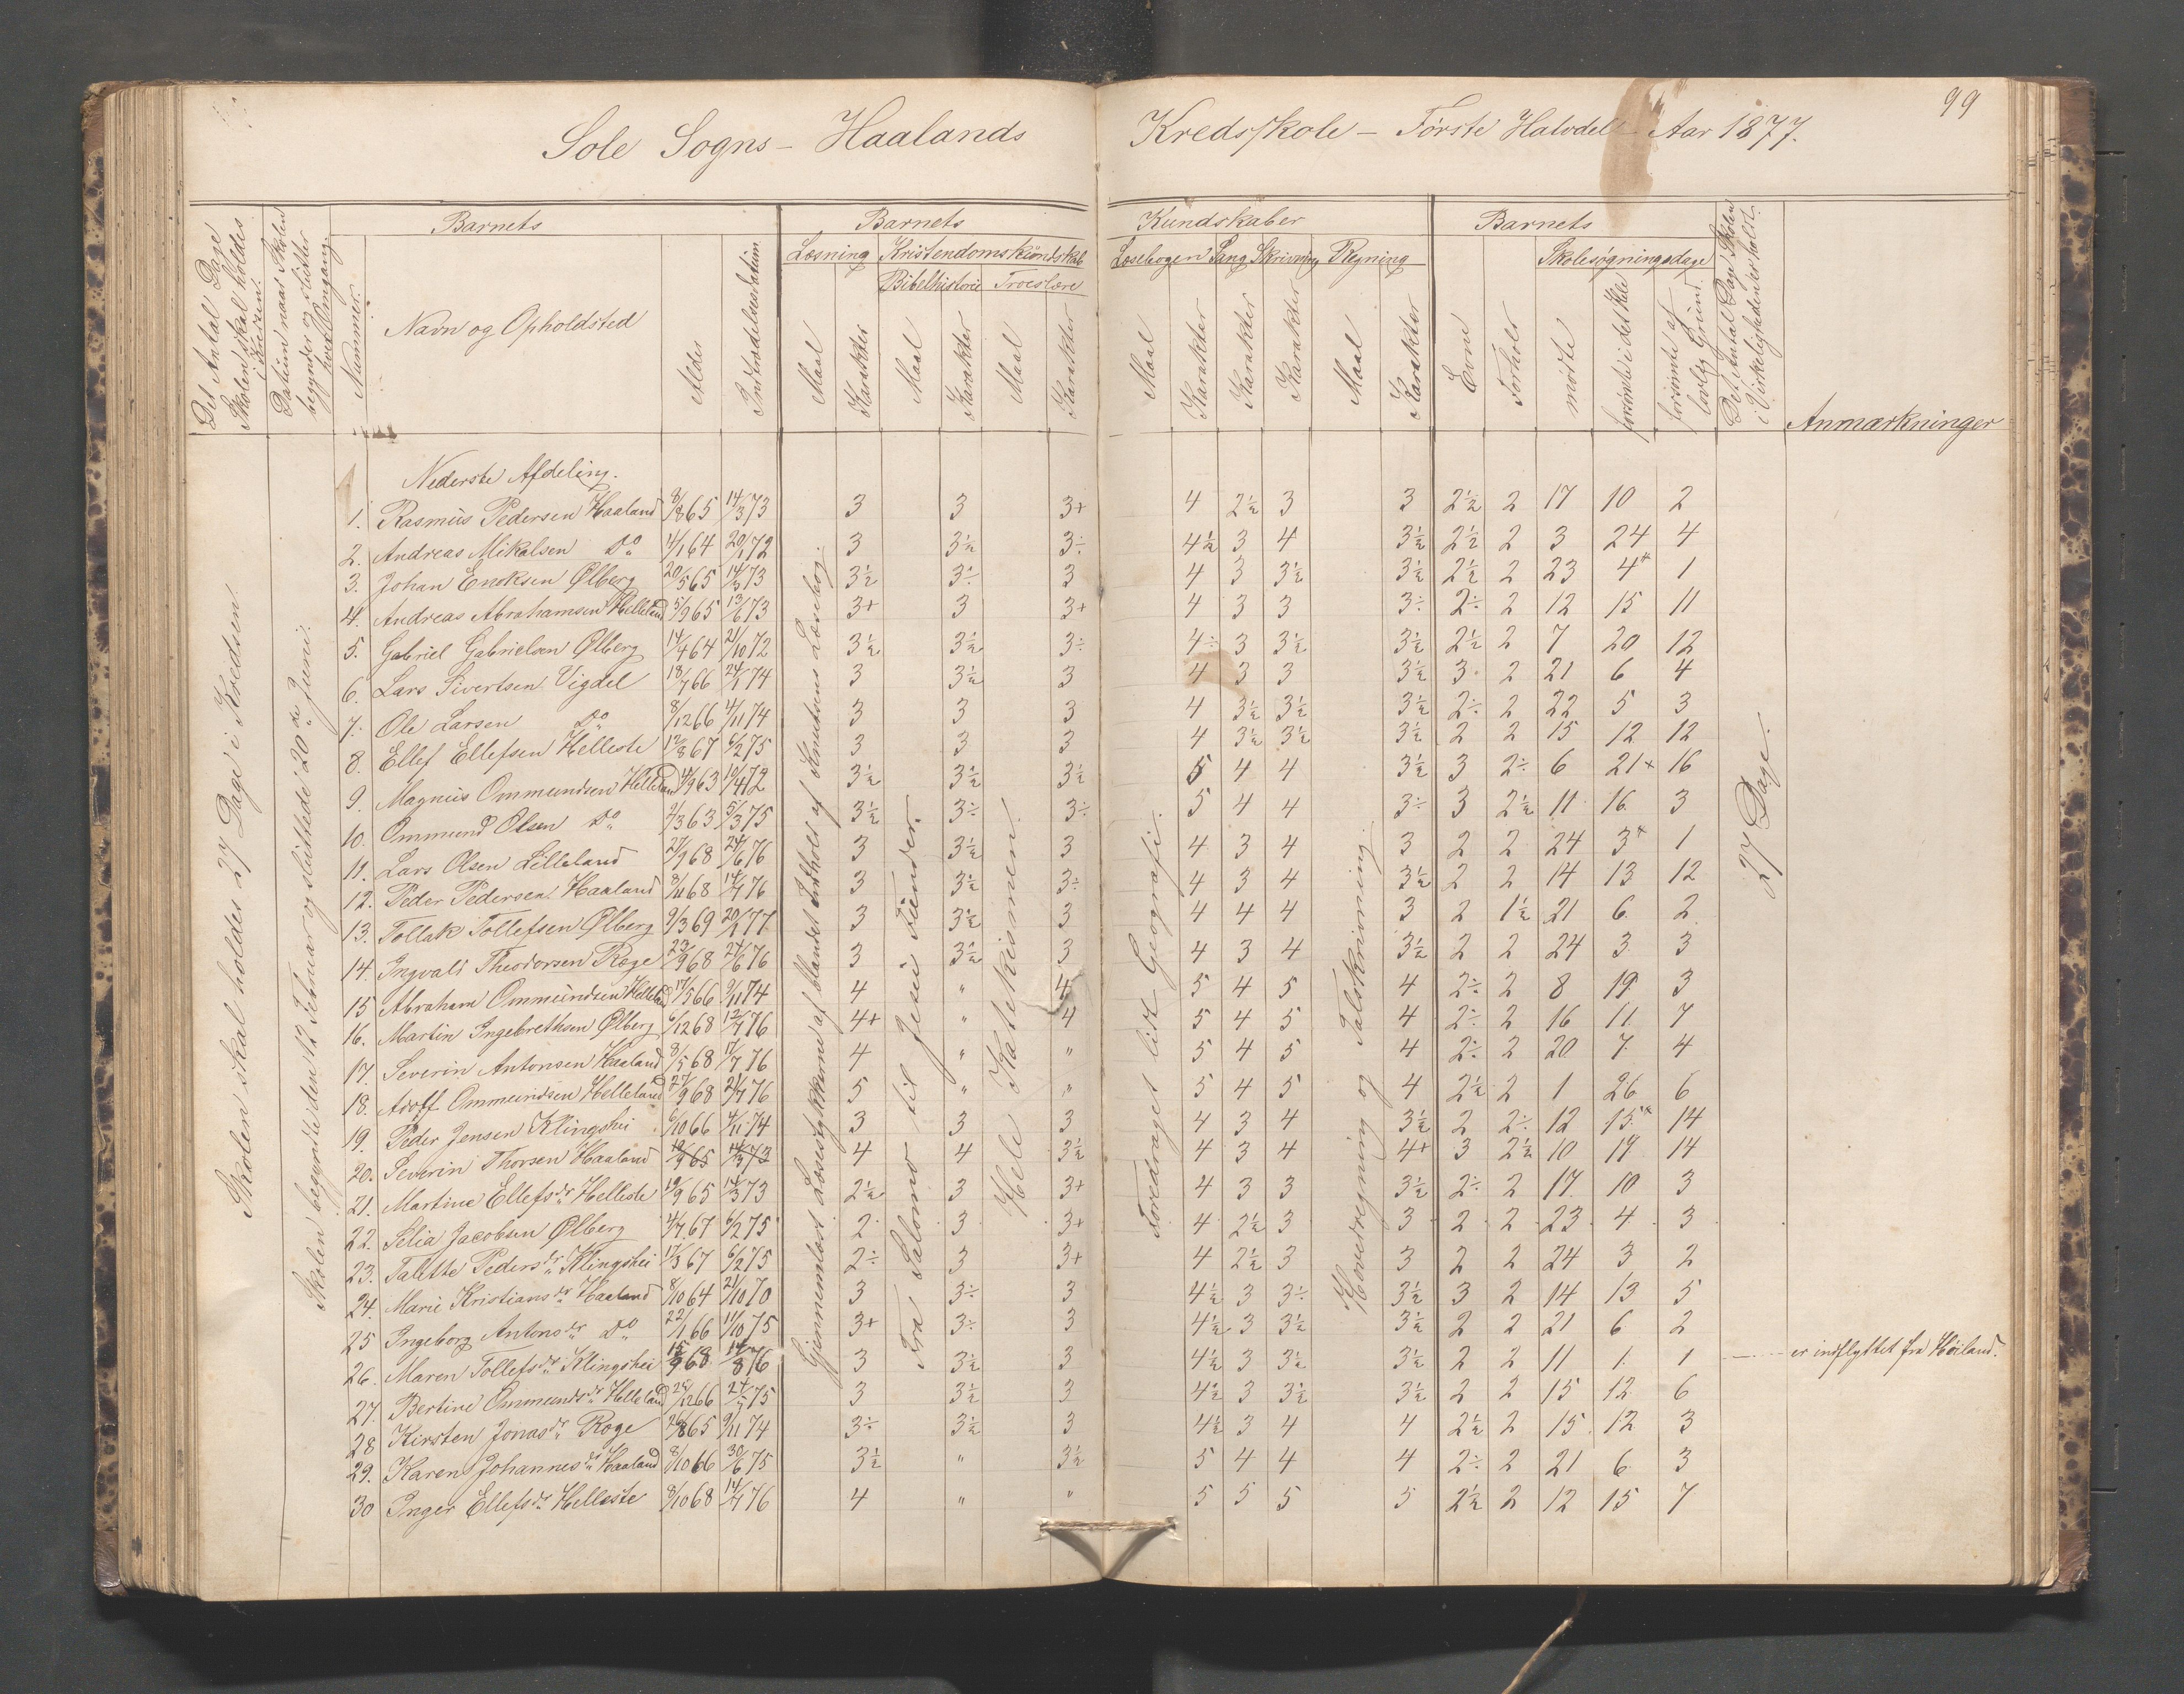 99
Sole Sogns - Haalands Kredsskole - Første Halvdel - Aar 1877.
Det Antal Dage Skolen skal holdes i Kredsen.
Datum naar Skolen begynder og slutter hver Omgang.
Barnets
Nummer.
Navn og Opholdsted
Alder
Indtrædelsesdatum
Barnets Kundskaber
Læsning Kristendomskundskab Læsebogen Sang Skrivning Regning
Bibelhistorie Troeslære
Maal Karakter Maal Karakter Maal Karakter Maal Karakter Karakter Karakter Maal Karakter
Barnets
Evne Forhold
Skolesøgningsdage
mødte
forsømte i det Hele
forsømte af lovlig Grund.
Det Antal Dage Skolen i Virkeligheden er holdt.
Anmærkninger
Skolen skal holdes 27 Dage i Kredsen.
Skolen begyndte den 12 Februar og sluttede 20de Juni.
Gjennemlæst Læsestykkerne af blandet Indhold af Knudsens Læsebog.
Fra Salomo til Jesu Fiender.
Hele Katekismen.
Foredraget lidt Geografi.
Hovedregning og Talskrivning.
27 Dage.
Nederste Afdeling.
1. Rasmus Pedersen Haaland 8/8 65 14/3 73 3 3 3+ 4 2½ 3 3 2½ 2 17 10 2
2. Andreas Mikalsen Do 11/1 64 20/1 72 3 3½ 3÷ 4½ 3 4 3½ 2½ 2 3 24 4
3. Johan Enoksen Ølberg 20/5 65 14/3 73 3½ 3÷ 3 4 3 3½ 3½ 2½ 2 23 4+ 1
4. Andreas Abrahamsen Helleland 5/9 65 13/6 73 3+ 3 3+ 4 3 3 3÷ 2÷ 2 12 15 11
5. Gabriel Gabrielsen Ølberg 14/4 64 21/10 72 3½ 3½ 3÷ 4÷ 3 3½ 3½ 2½ 2 7 20 12
6. Lars Sivertsen Vigdel 18/7 66 24/1 74 3 3½ 3 4 3 3 3½ 3 2 21 6 4
7. Ole Larsen Do 8/12 66 4/11 74 3 3 3 4 3½ 3½ 3½ 2÷ 2 22 5 3
8. Ellef Ellefsen Helleste 12/8 67 6/2 75 3 3 3 4 3½ 3½ 3½ 2 2 15 12 12
9. Magnus Ommundsen Helleland 4/9 63 10/4 72 3½ 3½ 3½ 5 4 4 3½ 3 2÷ 6 21+ 16
10. Ommund Olsen Do 9/3 63 5/3 75 3½ 3÷ 3÷ 5 4 4 3÷ 3 2½ 11 16 3
11. Lars Olsen Lilleland 27/9 68 24/6 76 3 3½ 3 4 3 4 3 2 2 24 3+ 1
12. Peder Pedersen Haaland 8/11 68 14/7 76 3 3½ 3÷ 4 3 4 3½ 2 2 14 13 12
13. Tollak Tollefsen Ølberg 9/3 69 20/2 77 3 3½ 3 4 4 4 3 2 1½ 21 6 2
14. Ingvald Theodorsen Roge 23/9 68 24/6 76 3 3½ 3 4 3 4 3½ 2 2 24 3 3
15 Abraham Ommundsen Helleland 17/5 66 9/11 74 4 " 4 5 4 5 4 2÷ 2 8 19 3
16. Martin Ingebrethsen Ølberg 6/12 68 12/7 76 4+ " 4 5 4 5 4 2÷ 2 16 11 7
17. Severin Antonsen Haaland 8/5 68 17/7 76 4 " " 5 4 5 4 2÷ 2 20 7 4
18. Adolf Ommundsen Helleland 27/9 68 21/7 76 5 " " 5 4 5 4 2½ 2 1 26 6
19. Peder Jensen Klingshei 6/10 66 4/11 74 3 3 3 4 3 4 3½ 2 2÷ 12 15+ 14
20. Severin Thorsen Haaland 19/9 65 14/3 73 4 4 3½ 4 3 4 4+ 3 2½ 10 17 14
21. Martine Ellefsdr Helleste 19/9 65 14/3 73 2½ 3 3+ 4 3 3 3½ 2÷ 2 17 10 3
22. Selia Jacobsen Ølberg 4/7 67 6/2 75 2 3 3+ 4 2½ 3 3 2 2 23 4 3
23. Talette Pedersdr Klingshei 17/3 67 6/2 75 2÷ 3 3+ 4 2½ 3 3 2 2 24 3 2
24. Marie Kristiansdr Haaland 8/10 64 21/10 70 3 3÷ 3 4½ 3 3÷ 3½ 3 2 14 13 5
25 Ingeborg Antonsdr Do 22/1 66 11/10 75 3+ 3÷ 3 4½ 3 3½ 3½ 2 2 21 6 2
26. Maren Tollefsdr Klingshei 15/9 68 14/8 76 3 3½ 3 4½ 3 3½ 3½ 2 2 11 1 1 er indflyttet fra Høiland.
27. Bertine Ommundsdr Helleland 28/12 66 27/5 75 3 3½ 3 4½ 3 3½ 3½ 2 2 15 12 6
28 Kirsten Jonasdr Roge 26/8 65 9/11 74 3÷ 3½ 3 4½ 3 4 4 2½ 2 15 12 3
29. Karen Johannesdr Haaland 8/10 66 30/6 75 3½ " 3½ 5 4 4 4 2÷ 2 21 6 3
30 Inger Ellefsdr Helleste 8/10 68 14/7 76 4 " " 5 5 5 5 2½ 2 12 15 7